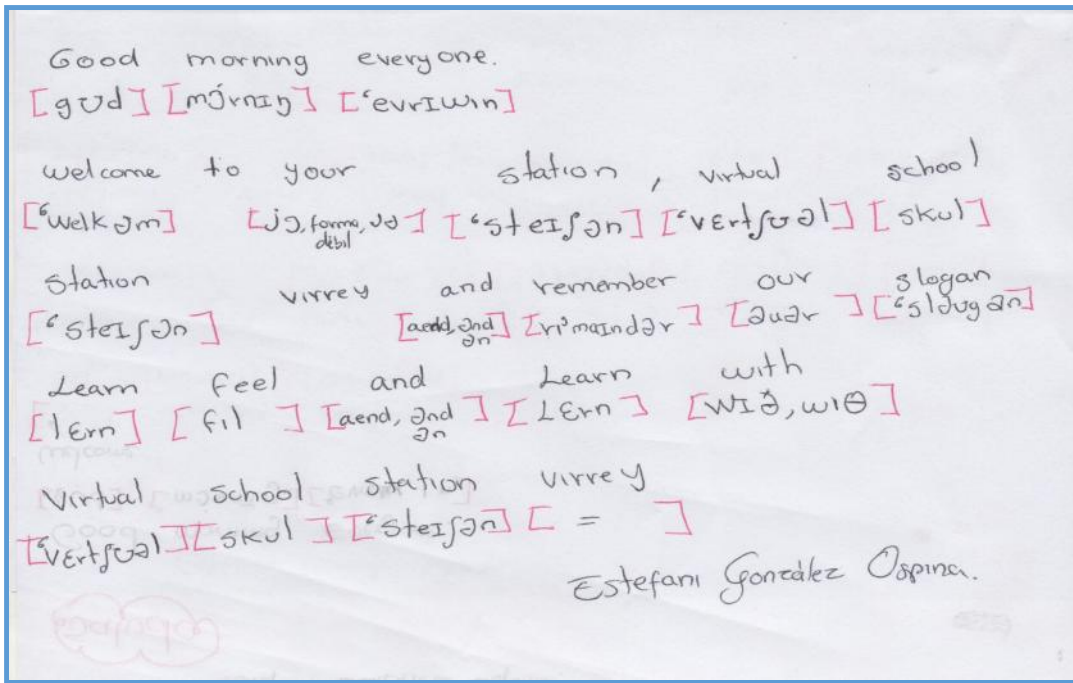 Good morning everyone.
[gʊd] [mɔ́rnɪŋ] [ˈevrɪwɪn]
welcome to your station, virtual school
[ˈwelkəm] [jɔ, forma débil, jə] [ˈsteɪʃən] [ˈvɛrtʃʊəl] [skul]
station virrey and remember our slogan
[ˈsteɪʃən] [aedd, ənd ən] [rɪˈmaɪndər] [əuər] [ˈsləʊgən]
Learn feel and Learn with
[lɛrn] [fɪl] [aend, ənd ən] [Lɛrn] [wɪð, wɪθ]
Virtual school station virrey
[ˈvɛrtʃʊəl] [skul] [ˈsteɪʃən] [ = ]
Estefani González Ospina.